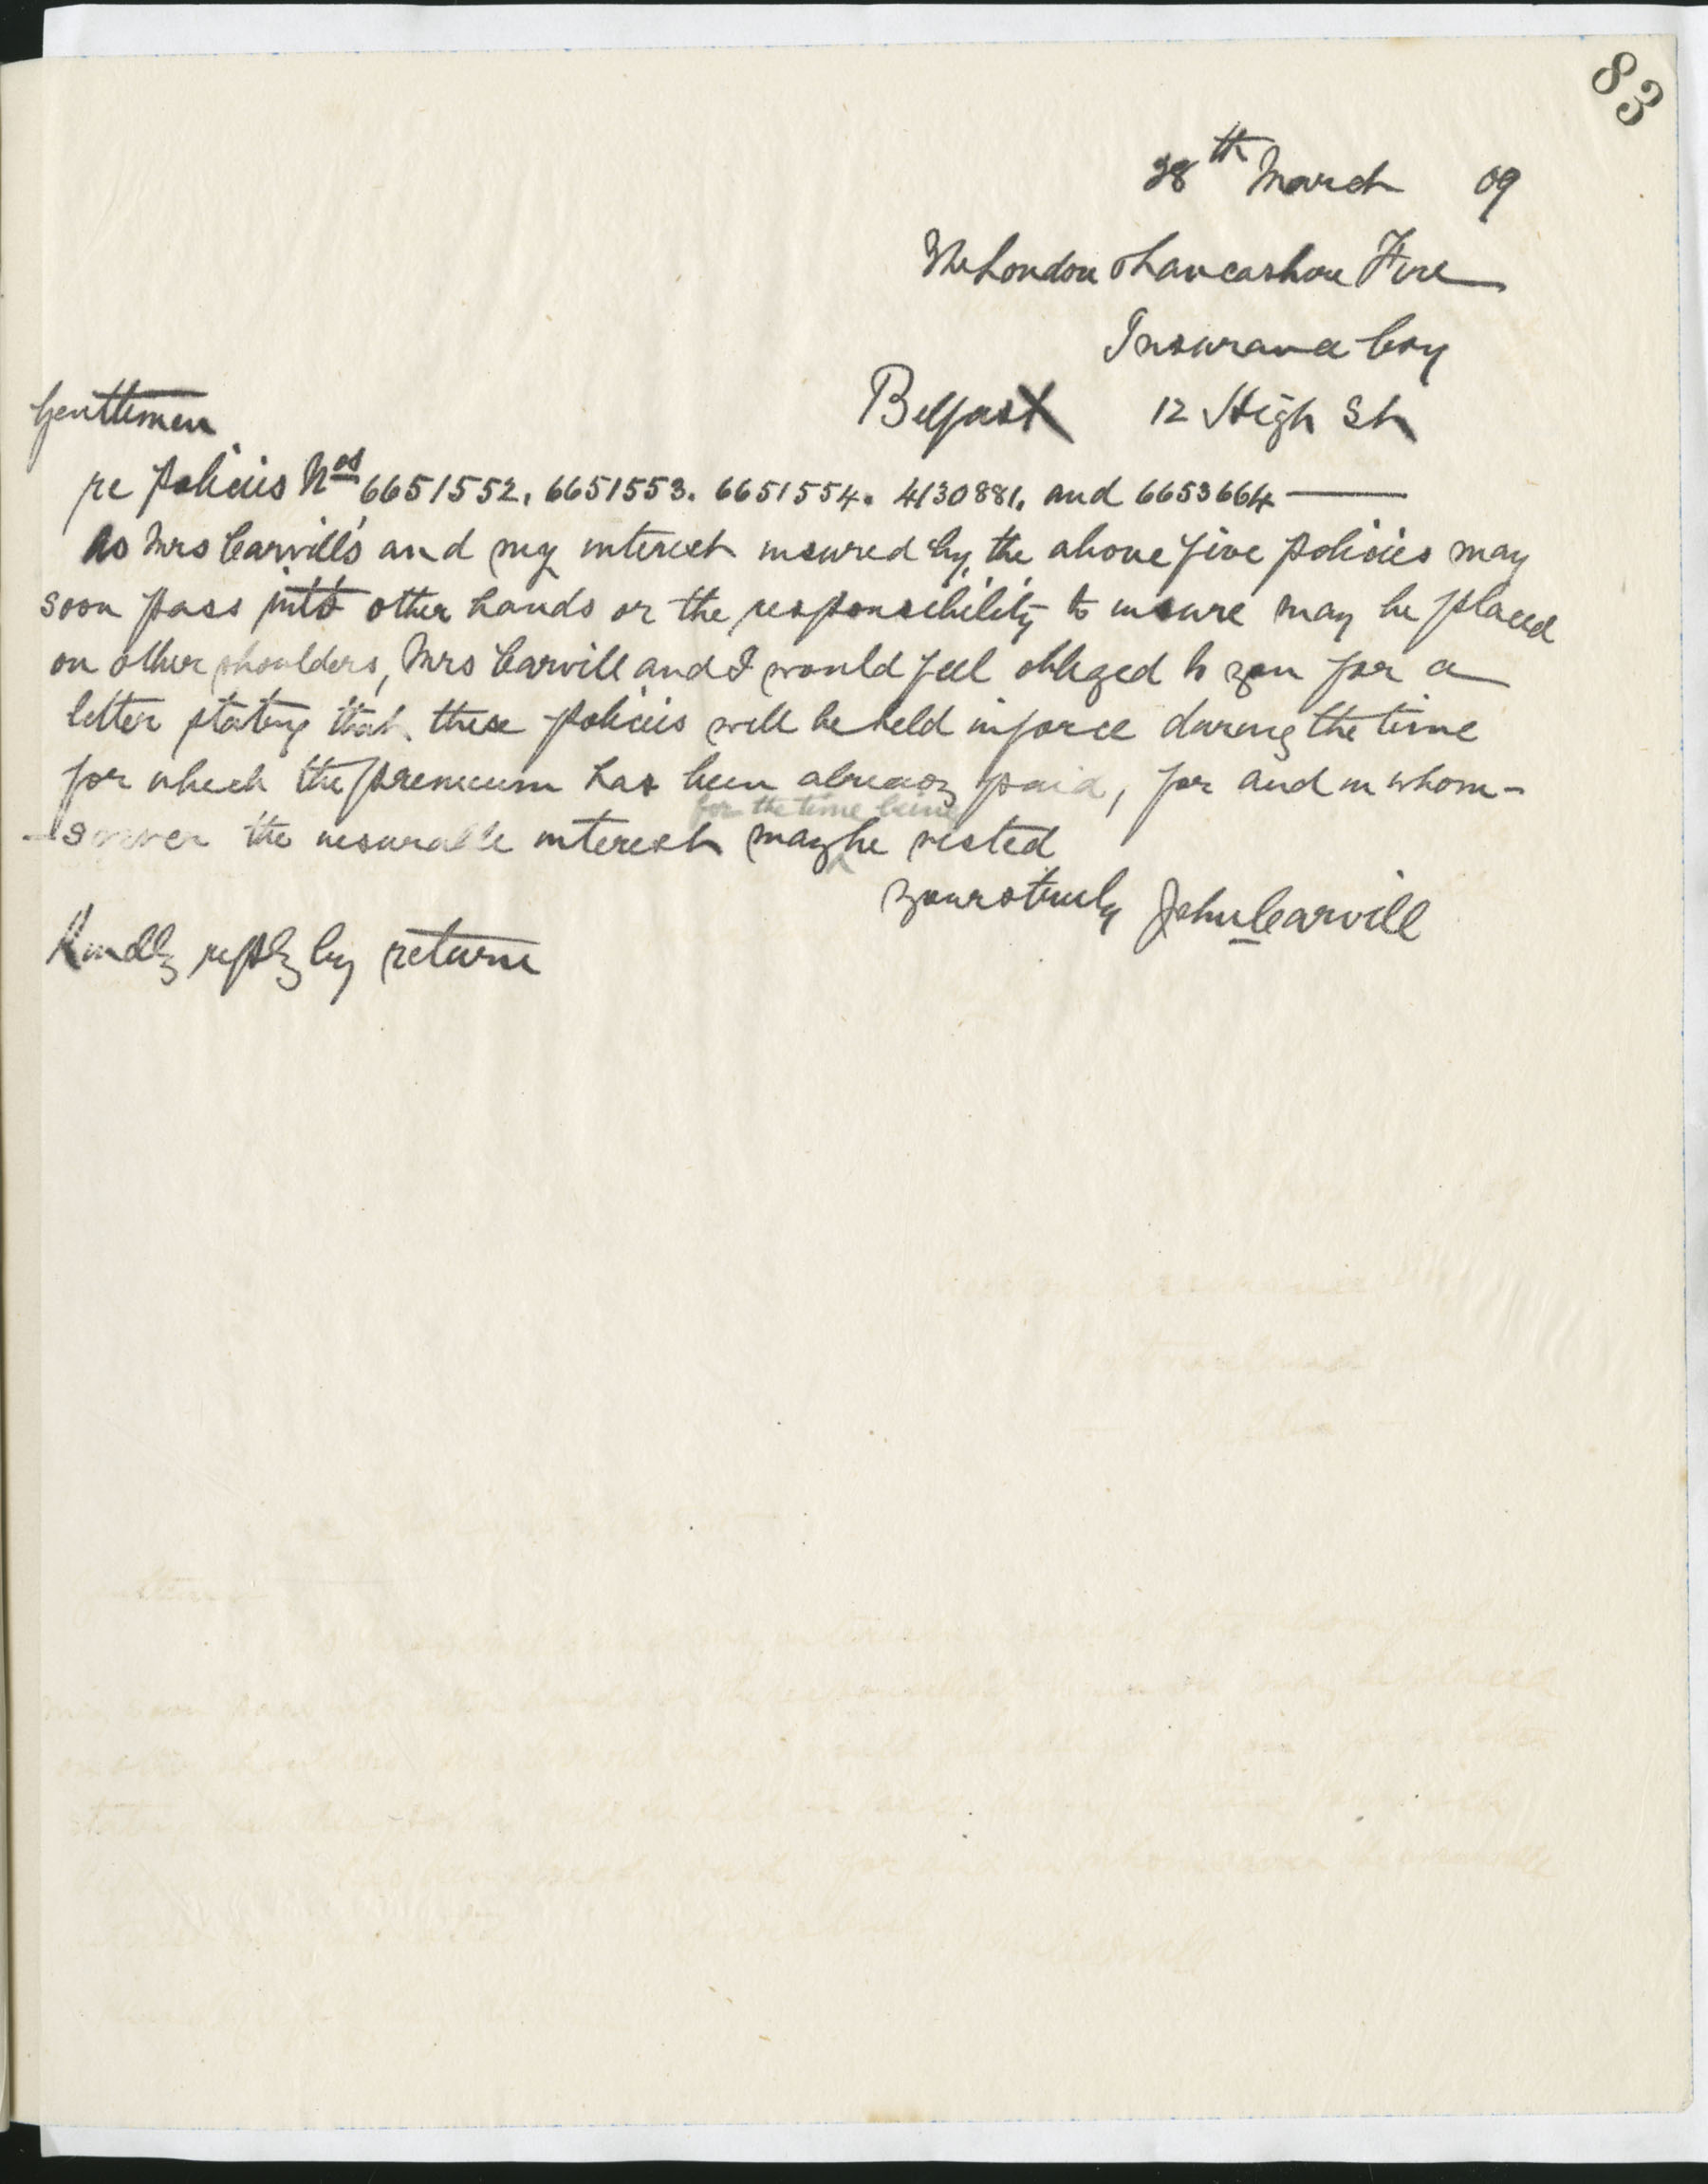 83
28th March 09
The London & Lancashire Fire
Insurance Coy
Belfast 12 High St
Gentlemen
re Policies Nos 6651552, 6651553. 6651554. 4130881, and 6653664
As Mrs Carvill's and my interest insured by the above five policies may
soon pass into other hands or the responsibility to insure may be placed
on other shoulders, Mrs Carvill and I would feel obliged to you for a
letter stating that these policies will be held in force during the time
for which the premium has been already paid, for and in whom-
for the time being
-soever the insurable interest may be vested
Yours truly John Carvill
Kindly reply by return